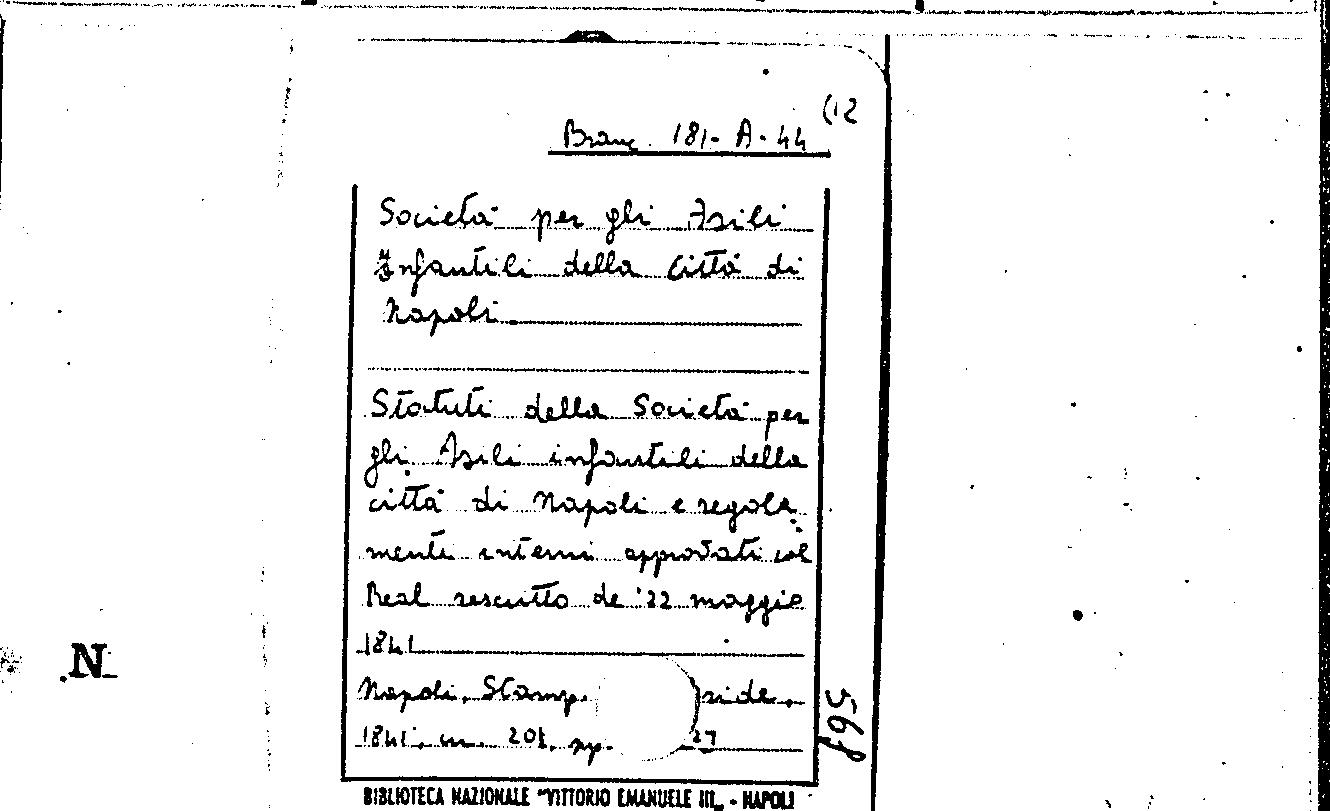 (12
Branc. 181-A-44
Società per gli Asili
Infantili della Città di
Napoli
Statuti della Società per
gli Asili infantili della
città di Napoli e regola
menti interni approvati col
Real rescritto de' 22 maggio
1841
Napoli, Stamp. side,
1841, in 20¦, pp. 27
568
N
BIBLIOTECA NAZIONALE "VITTORIO EMANUELE III„ - NAPOLI